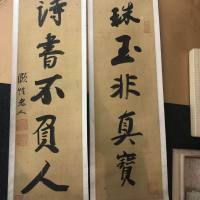 珠玉非真寶
詩書不負人